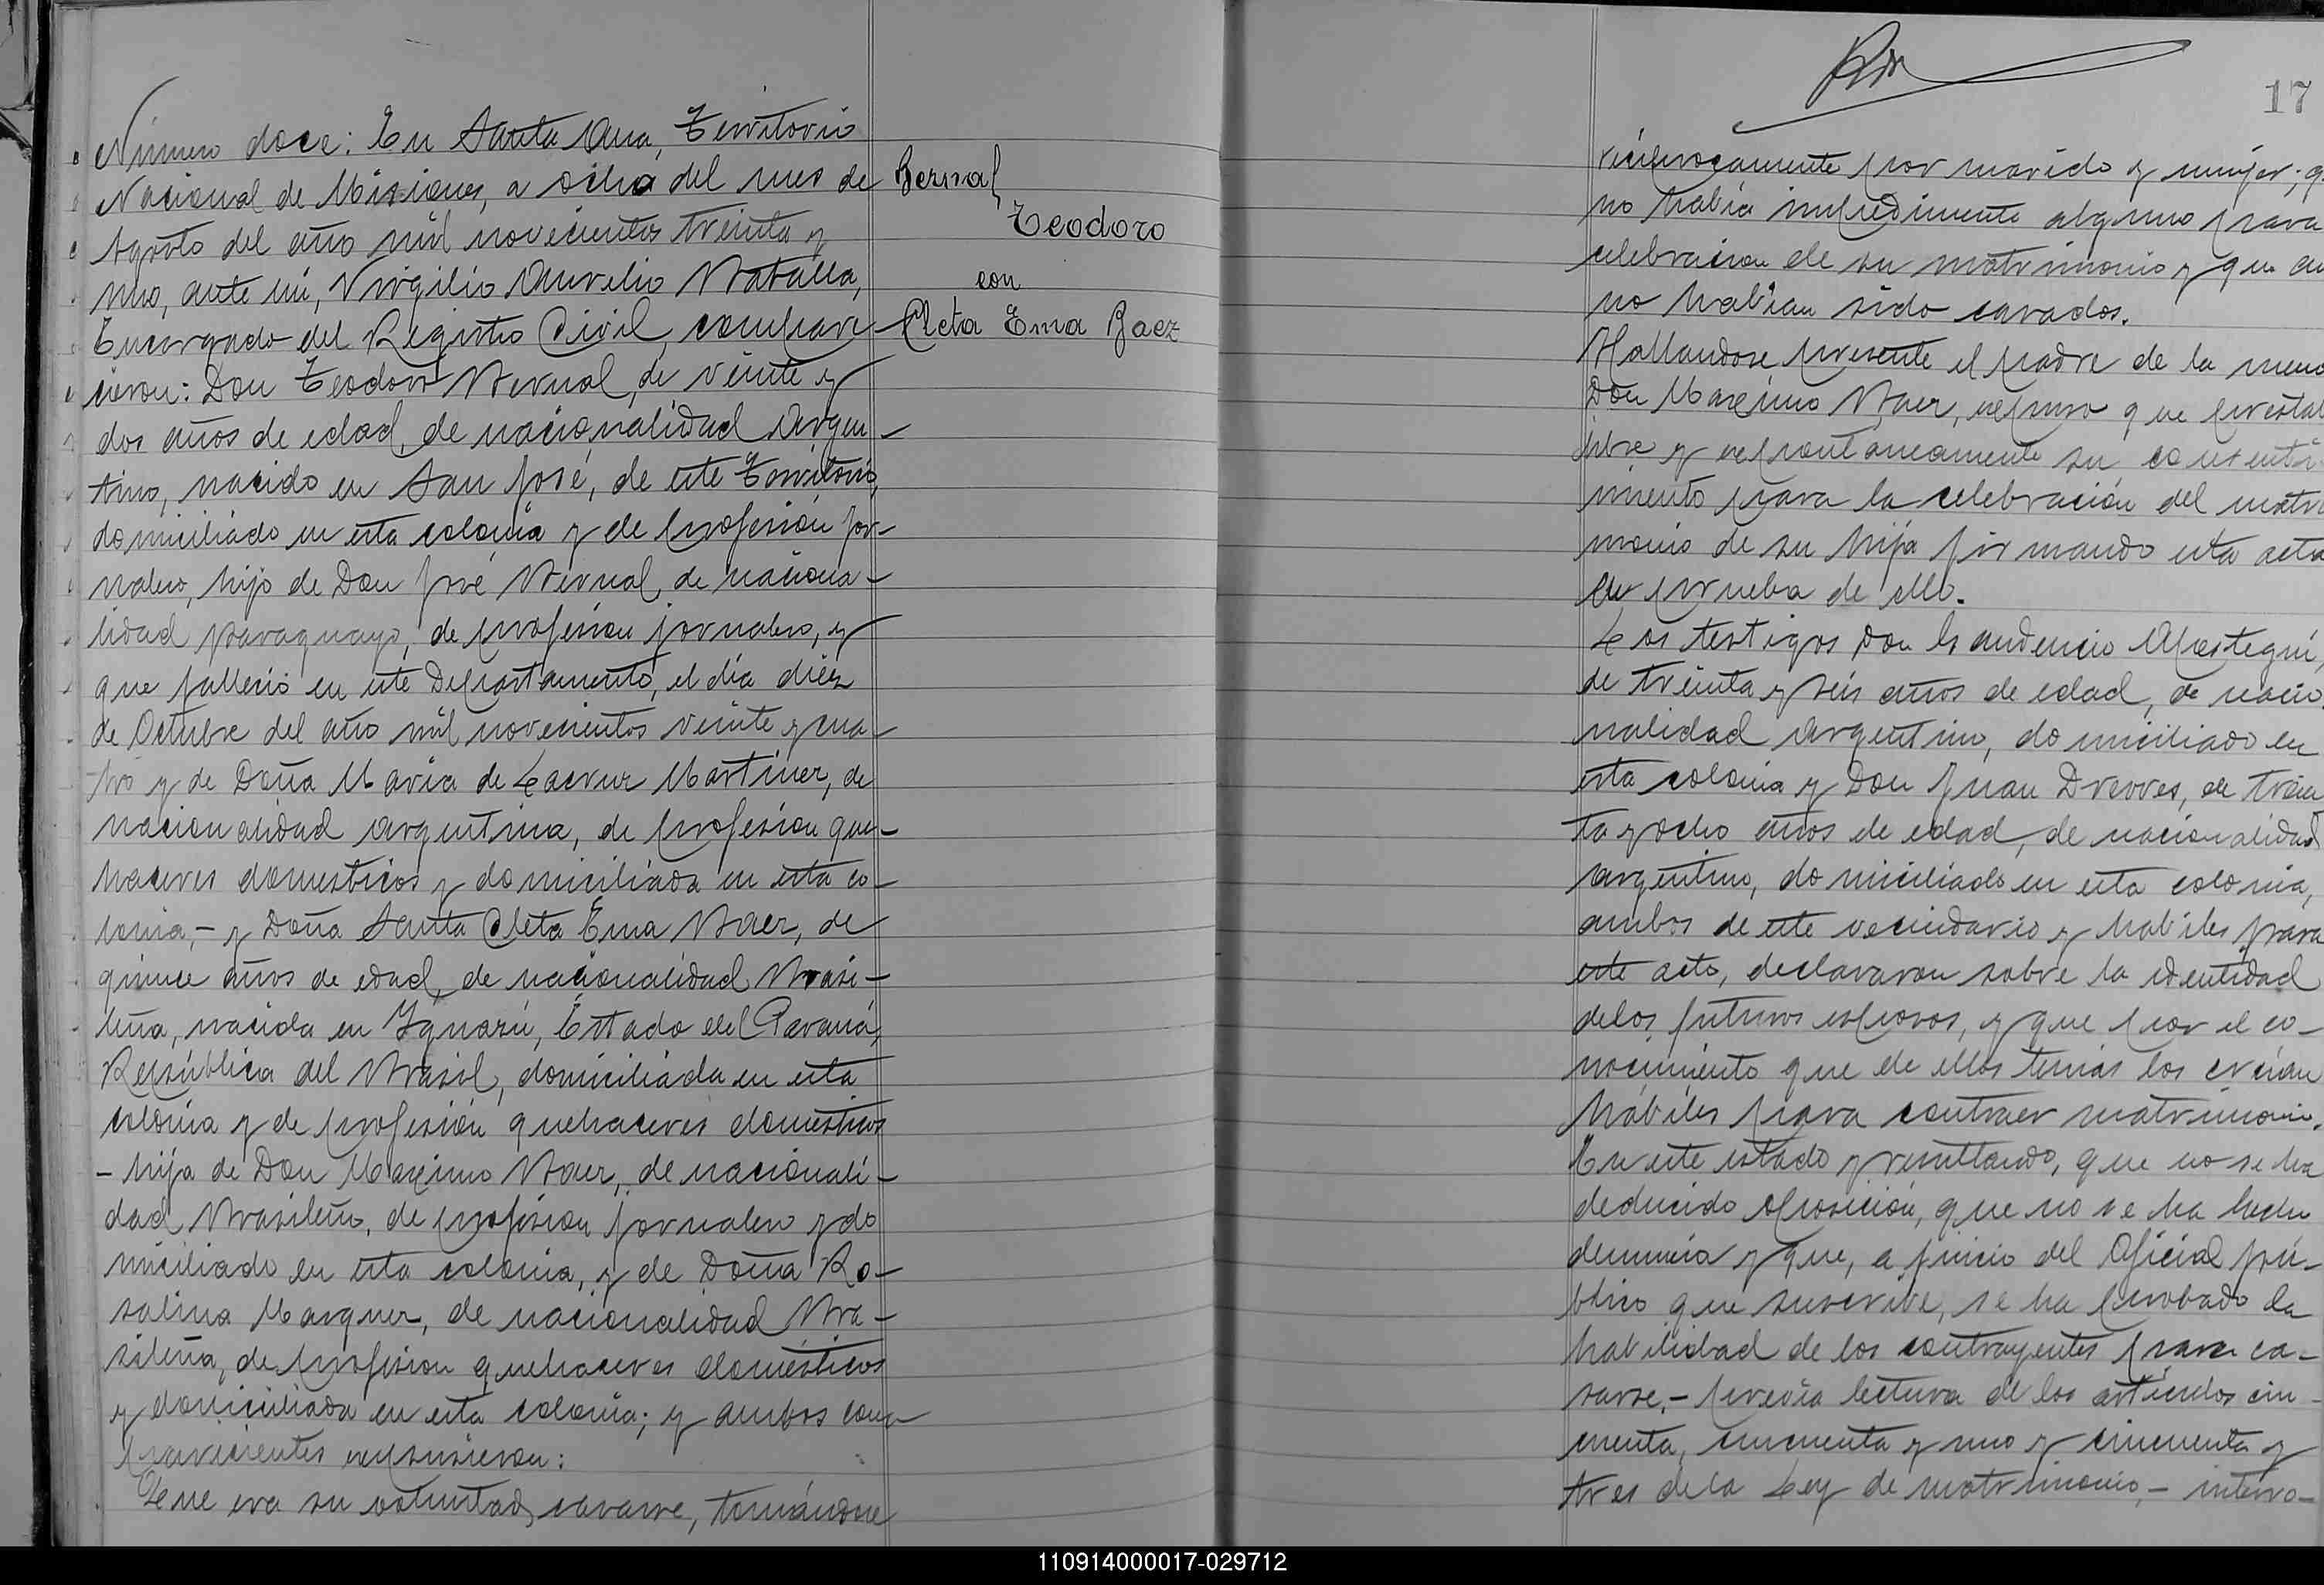 Número doce: En Santa Ana, Territorio
Nacional de Misiones, a ocho del mes de
Agosto del año mil novecientos treinta y
uno, ante mí, Virgilio Aurelio Batalla,
Encargado del Registro Civil, compare-
cieron: Don Teodoro Bernal, de veinte y
dos años de edad, de nacionalidad Argen-
tino, nacido en San José, de este Territorio,
domiciliado en esta colonia y de profesión jor-
nalero, hijo de Don José Bernal, de naciona-
lidad paraguayo, de profesion jornalero, y
que falleció en este Departamento, el día diez
de Octubre del año mil novecientos veinte y cua-
tro y de Doña María de Lacruz Martinez, de
nacionalidad argentina, de profesion que-
haceres domesticos y domiciliada en esta co-
lonia,- y Doña Santa Cleta Ema Baez, de
quince años de edad, de nacionalidad Brasi-
leña, nacida en Iguazú, Estado del Paraná,
República del Brasil, domiciliada en esta
colonia y de profesión quehaceres domésticos
- hija de Don Maximo Baez, de nacionali-
dad Brasileño, de profesion jornalero y do
miciliado en esta colonia, y de Doña Ro-
salina Marquez, de nacionalidad Bra-
sileña, de profision quehaceres domésticos
y domiciliada en esta colonia; y ambos com-
parecientes expusieron:
Que era su voluntad casarse, tomándose
Bernal
Teodoro
con
Cleta Ema Baez
17
recíprocamente por marido y mujer; q
no había impedimento alguno para
celebracion de su matrimonio y que an
no habían sido casados.
Hallandose presente el padre de la meno
Don Maximo Baez, expuso que prestab
libre y espontaneamente su consenti
miento para la celebración del matri
monio de su hija firmando esta acta
en prueba de ello.
Los testigos Don Gaudencio Apestegui
de treinta y seis años de edad, de nacio
nalidad argentino, domiciliado en
esta colonia y Don Juan de trein
ta y ocho años de edad, de nacionalidad
argentino, domiciliado en esta colonia,
ambos de este vecindario y habiles para
este acto, declararon sobre la identidad
de los futuros esposos, y que por el co-
nocimiento que de ellos tenías los creían
hábiles para contraer matrimonio.
En este estado y resultando, que no se ha
deducido oposición, que no se ha hecho
denuncia y que, a juicio del Oficial pú-
blico que suscribe, se ha probado la
habilidad de los contrayentes para ca-
sarse,- previa lectura de los artículos cin-
cuenta, cincuenta y uno y cincuenta y
tres de la Ley de matrimonio,- interro-
110914000017-029712